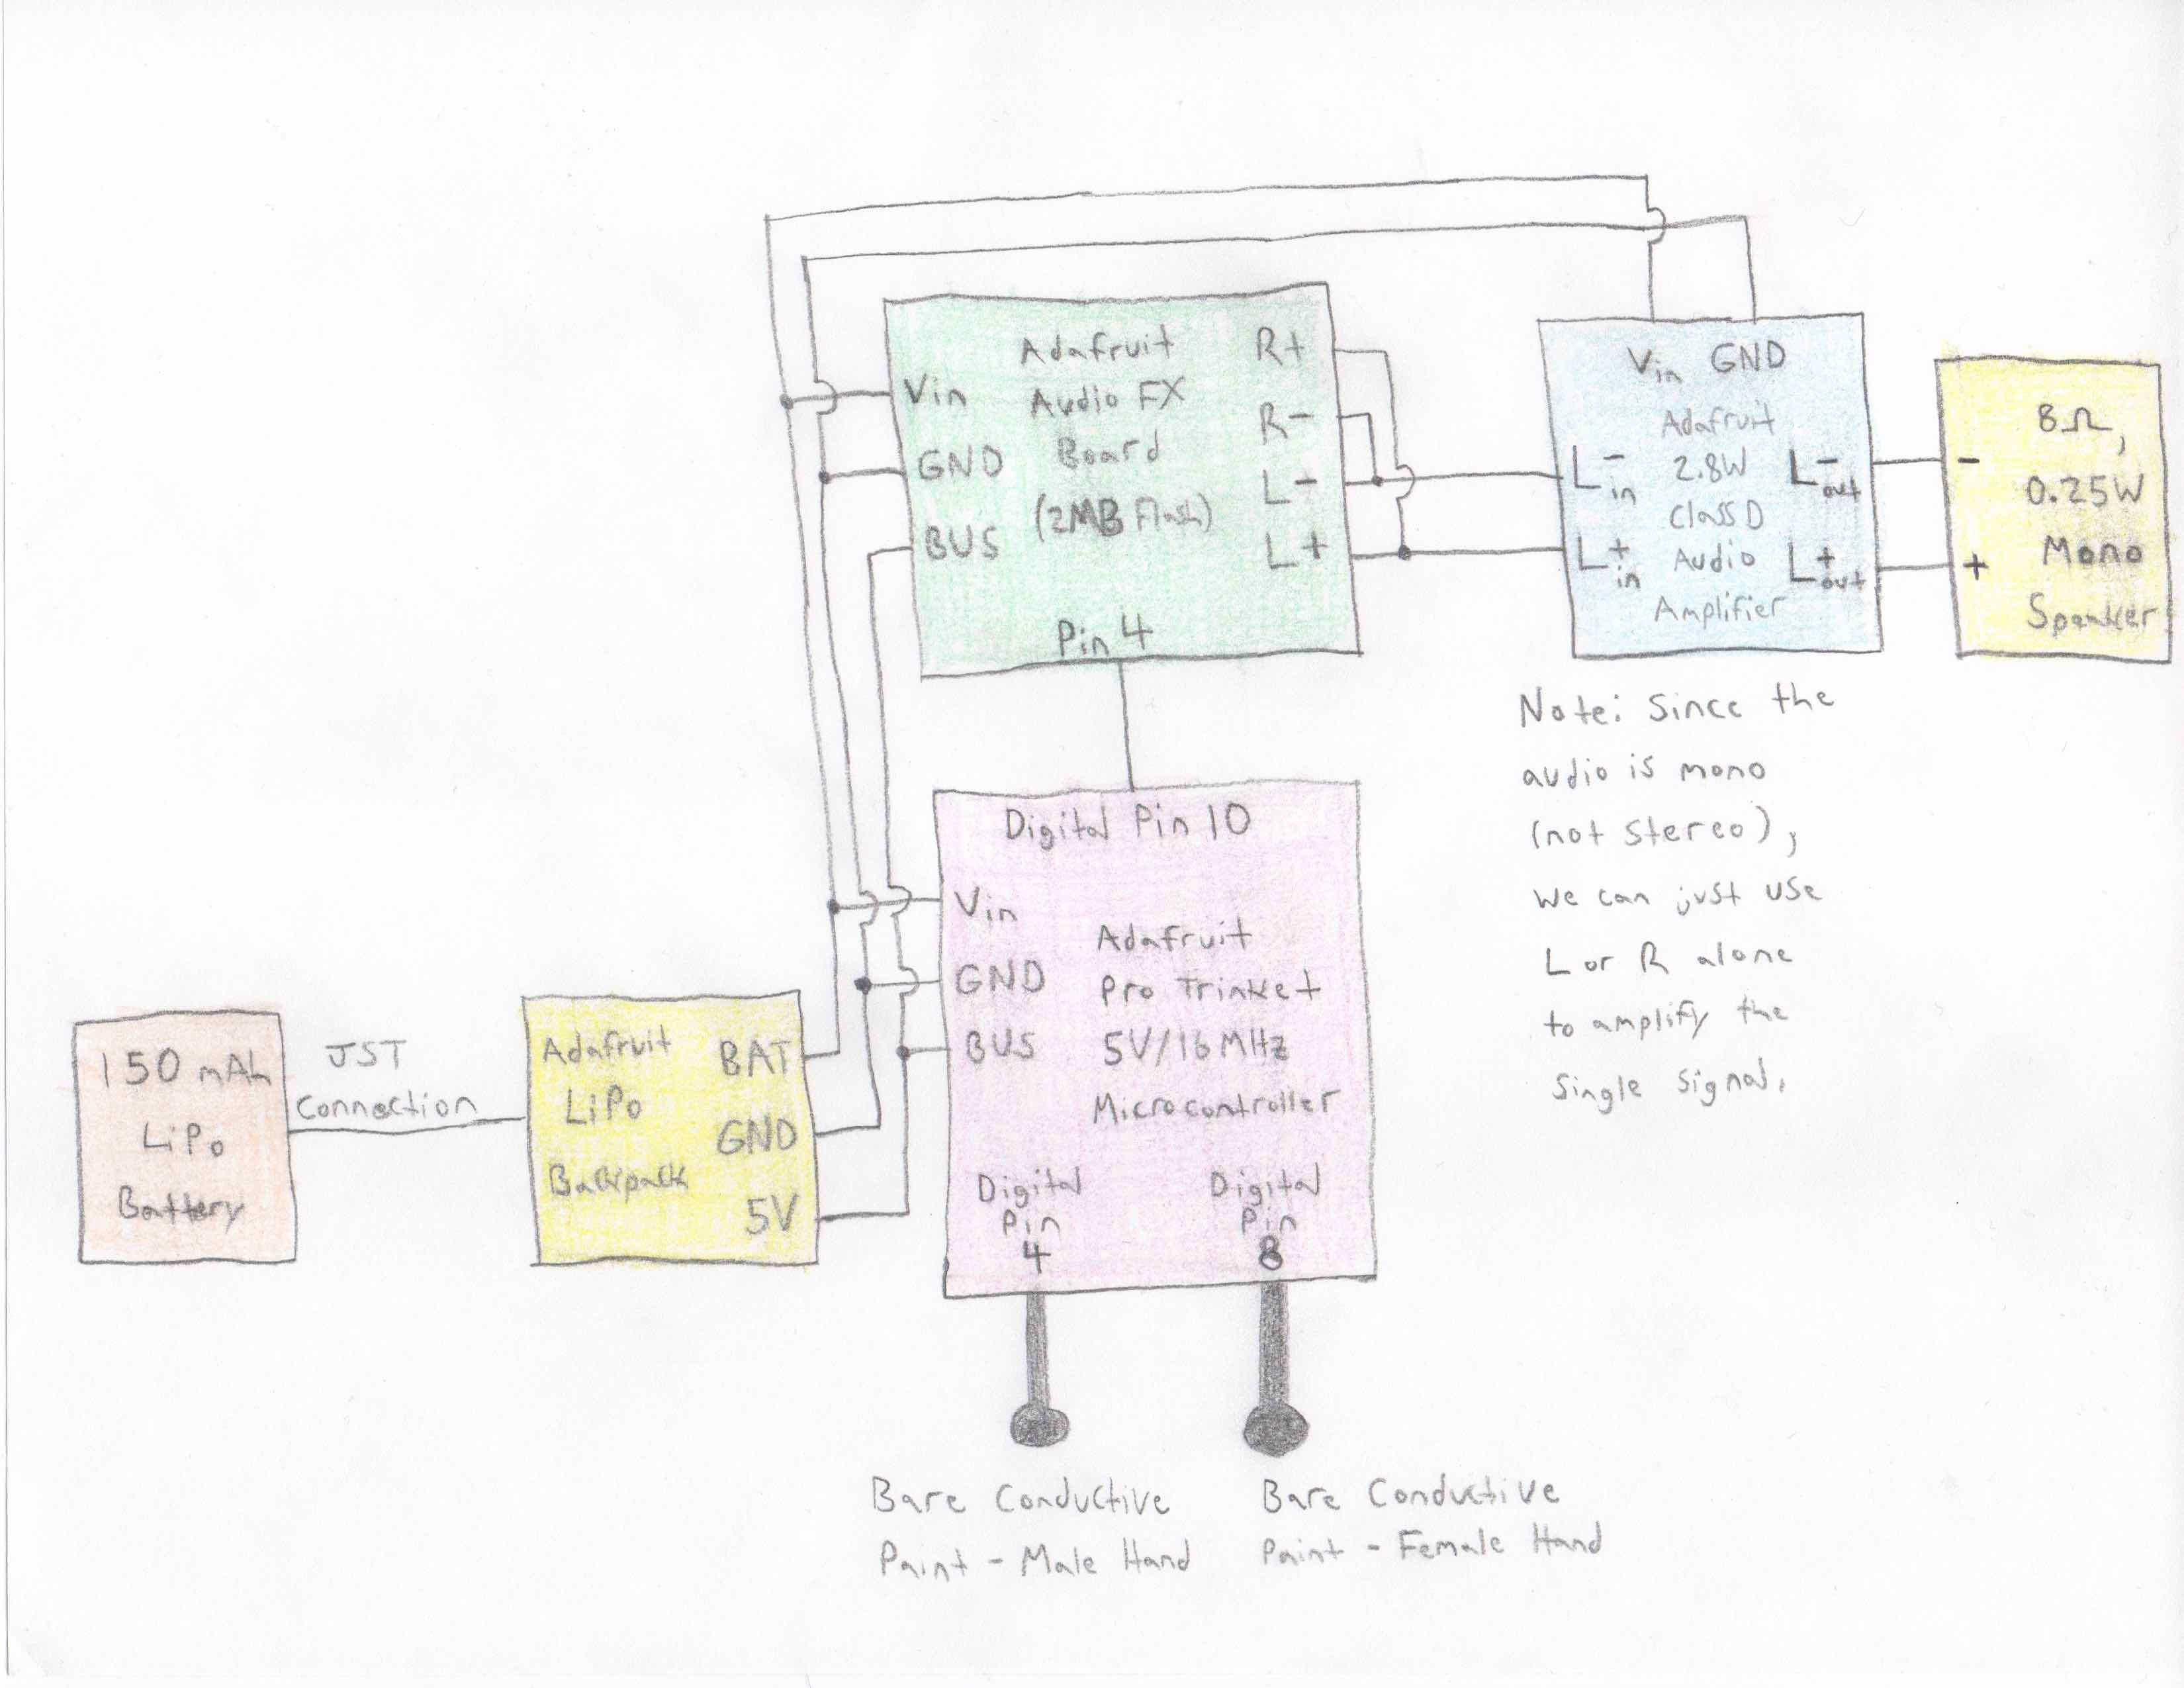 Adafruit
Audio FX
Board
(2MB Flash)
Vin
GND
BUS
R+
R-
L-
L+
Pin 4
Vin GND
Adafruit
2.8W
Class D
Audio
Amplifier
L-in
L+in
L-out
L+out
-
+
8Ω,
0.25W
Mono
Speaker
Note: Since the
audio is mono
(not stereo),
we can just use
L or R alone
to amplify the
single signal.
Digital Pin 10
Vin
GND
BUS
Adafruit
Pro Trinket
5V/16MHz
Microcontroller
Digital
Pin
4
Digital
Pin
8
150 mAh
LiPo
Battery
JST
Connection
Adafruit
LiPo
Backpack
BAT
GND
5V
Bare Conductive
Paint - Male Hand
Bare Conductive
Paint - Female Hand